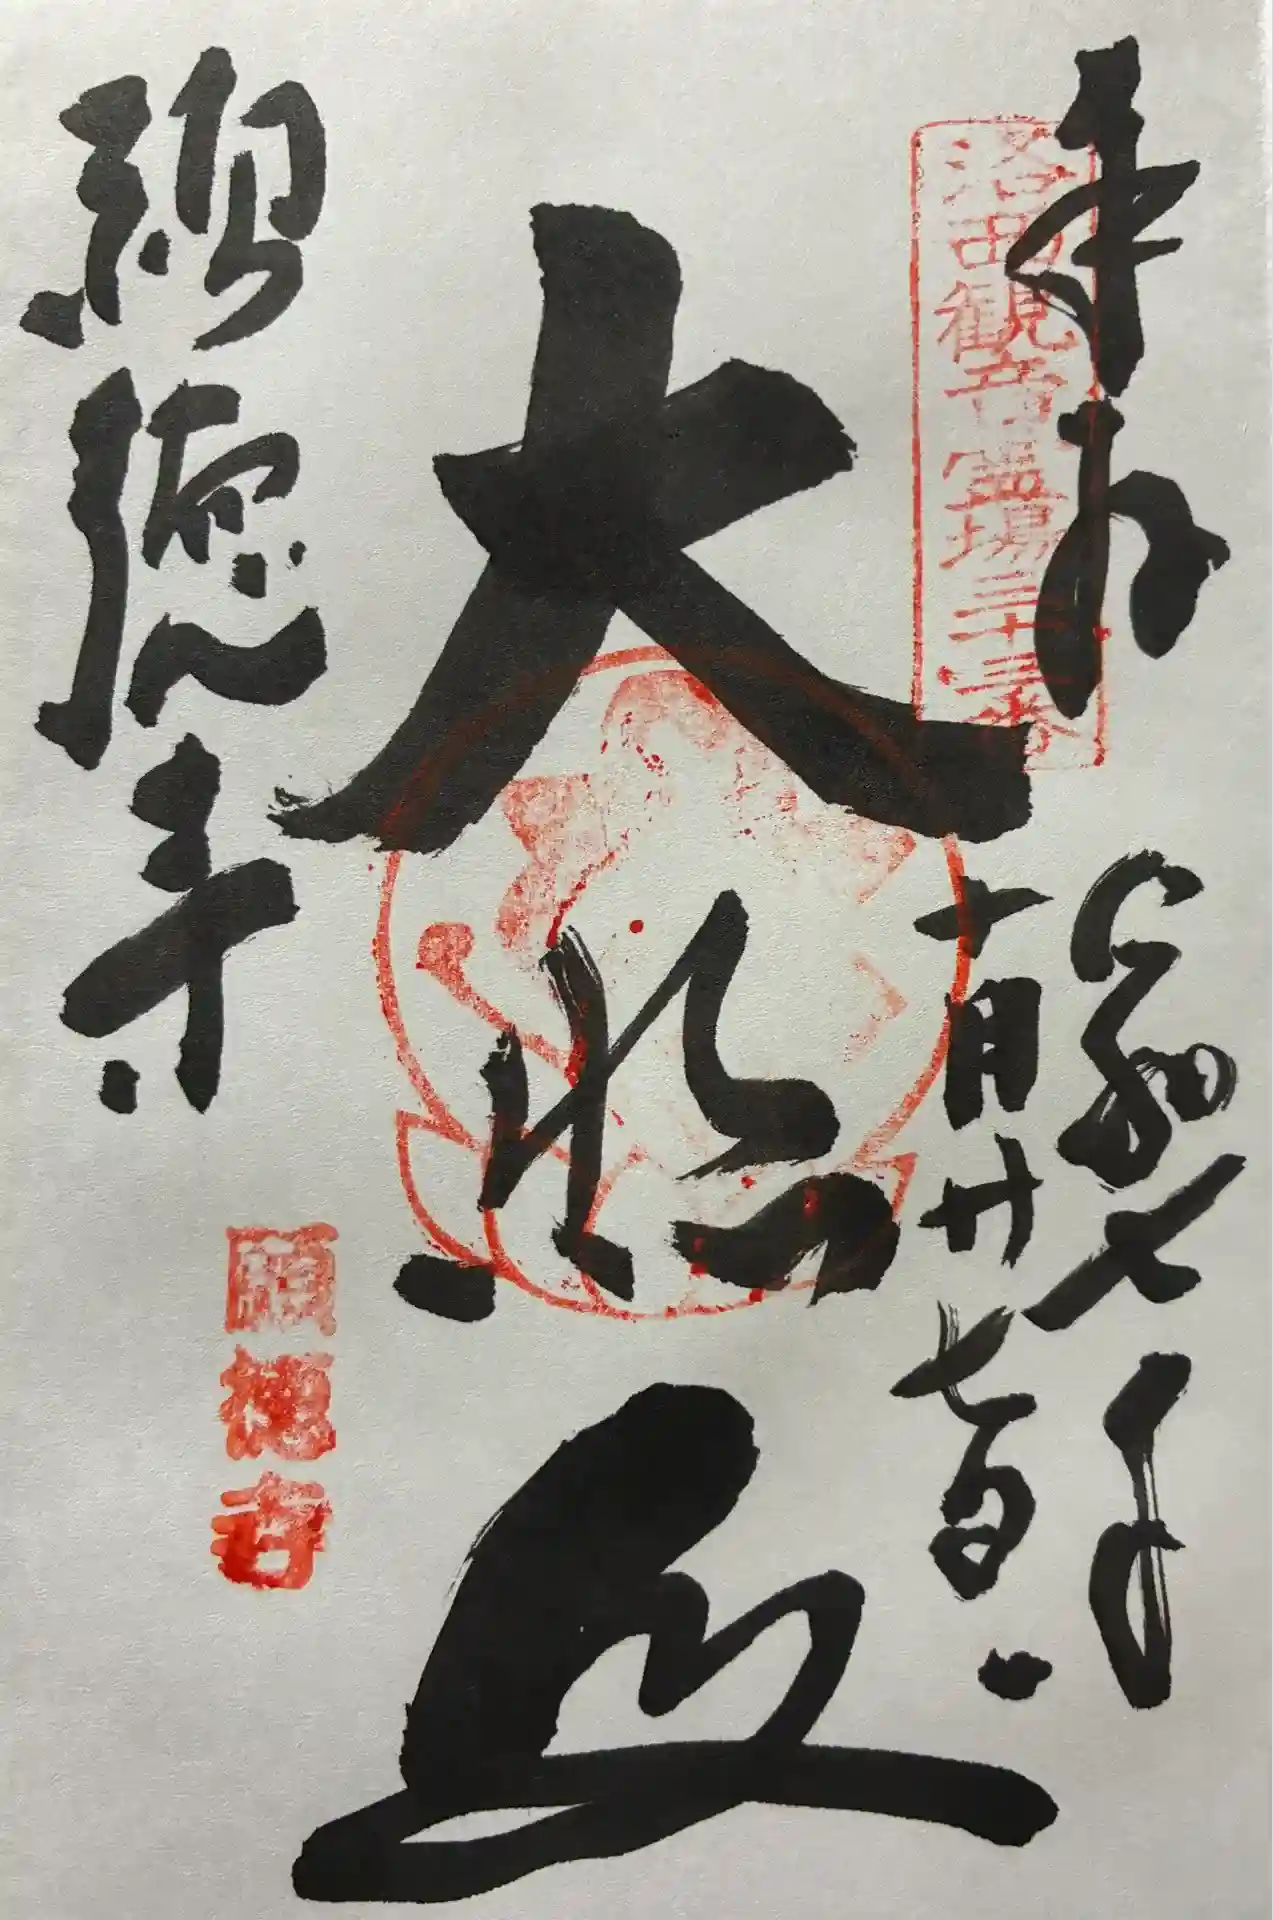 奉拝
洛西観音霊場三十三番
令和七年
十月廿七日
大悲
願徳寺
願徳寺